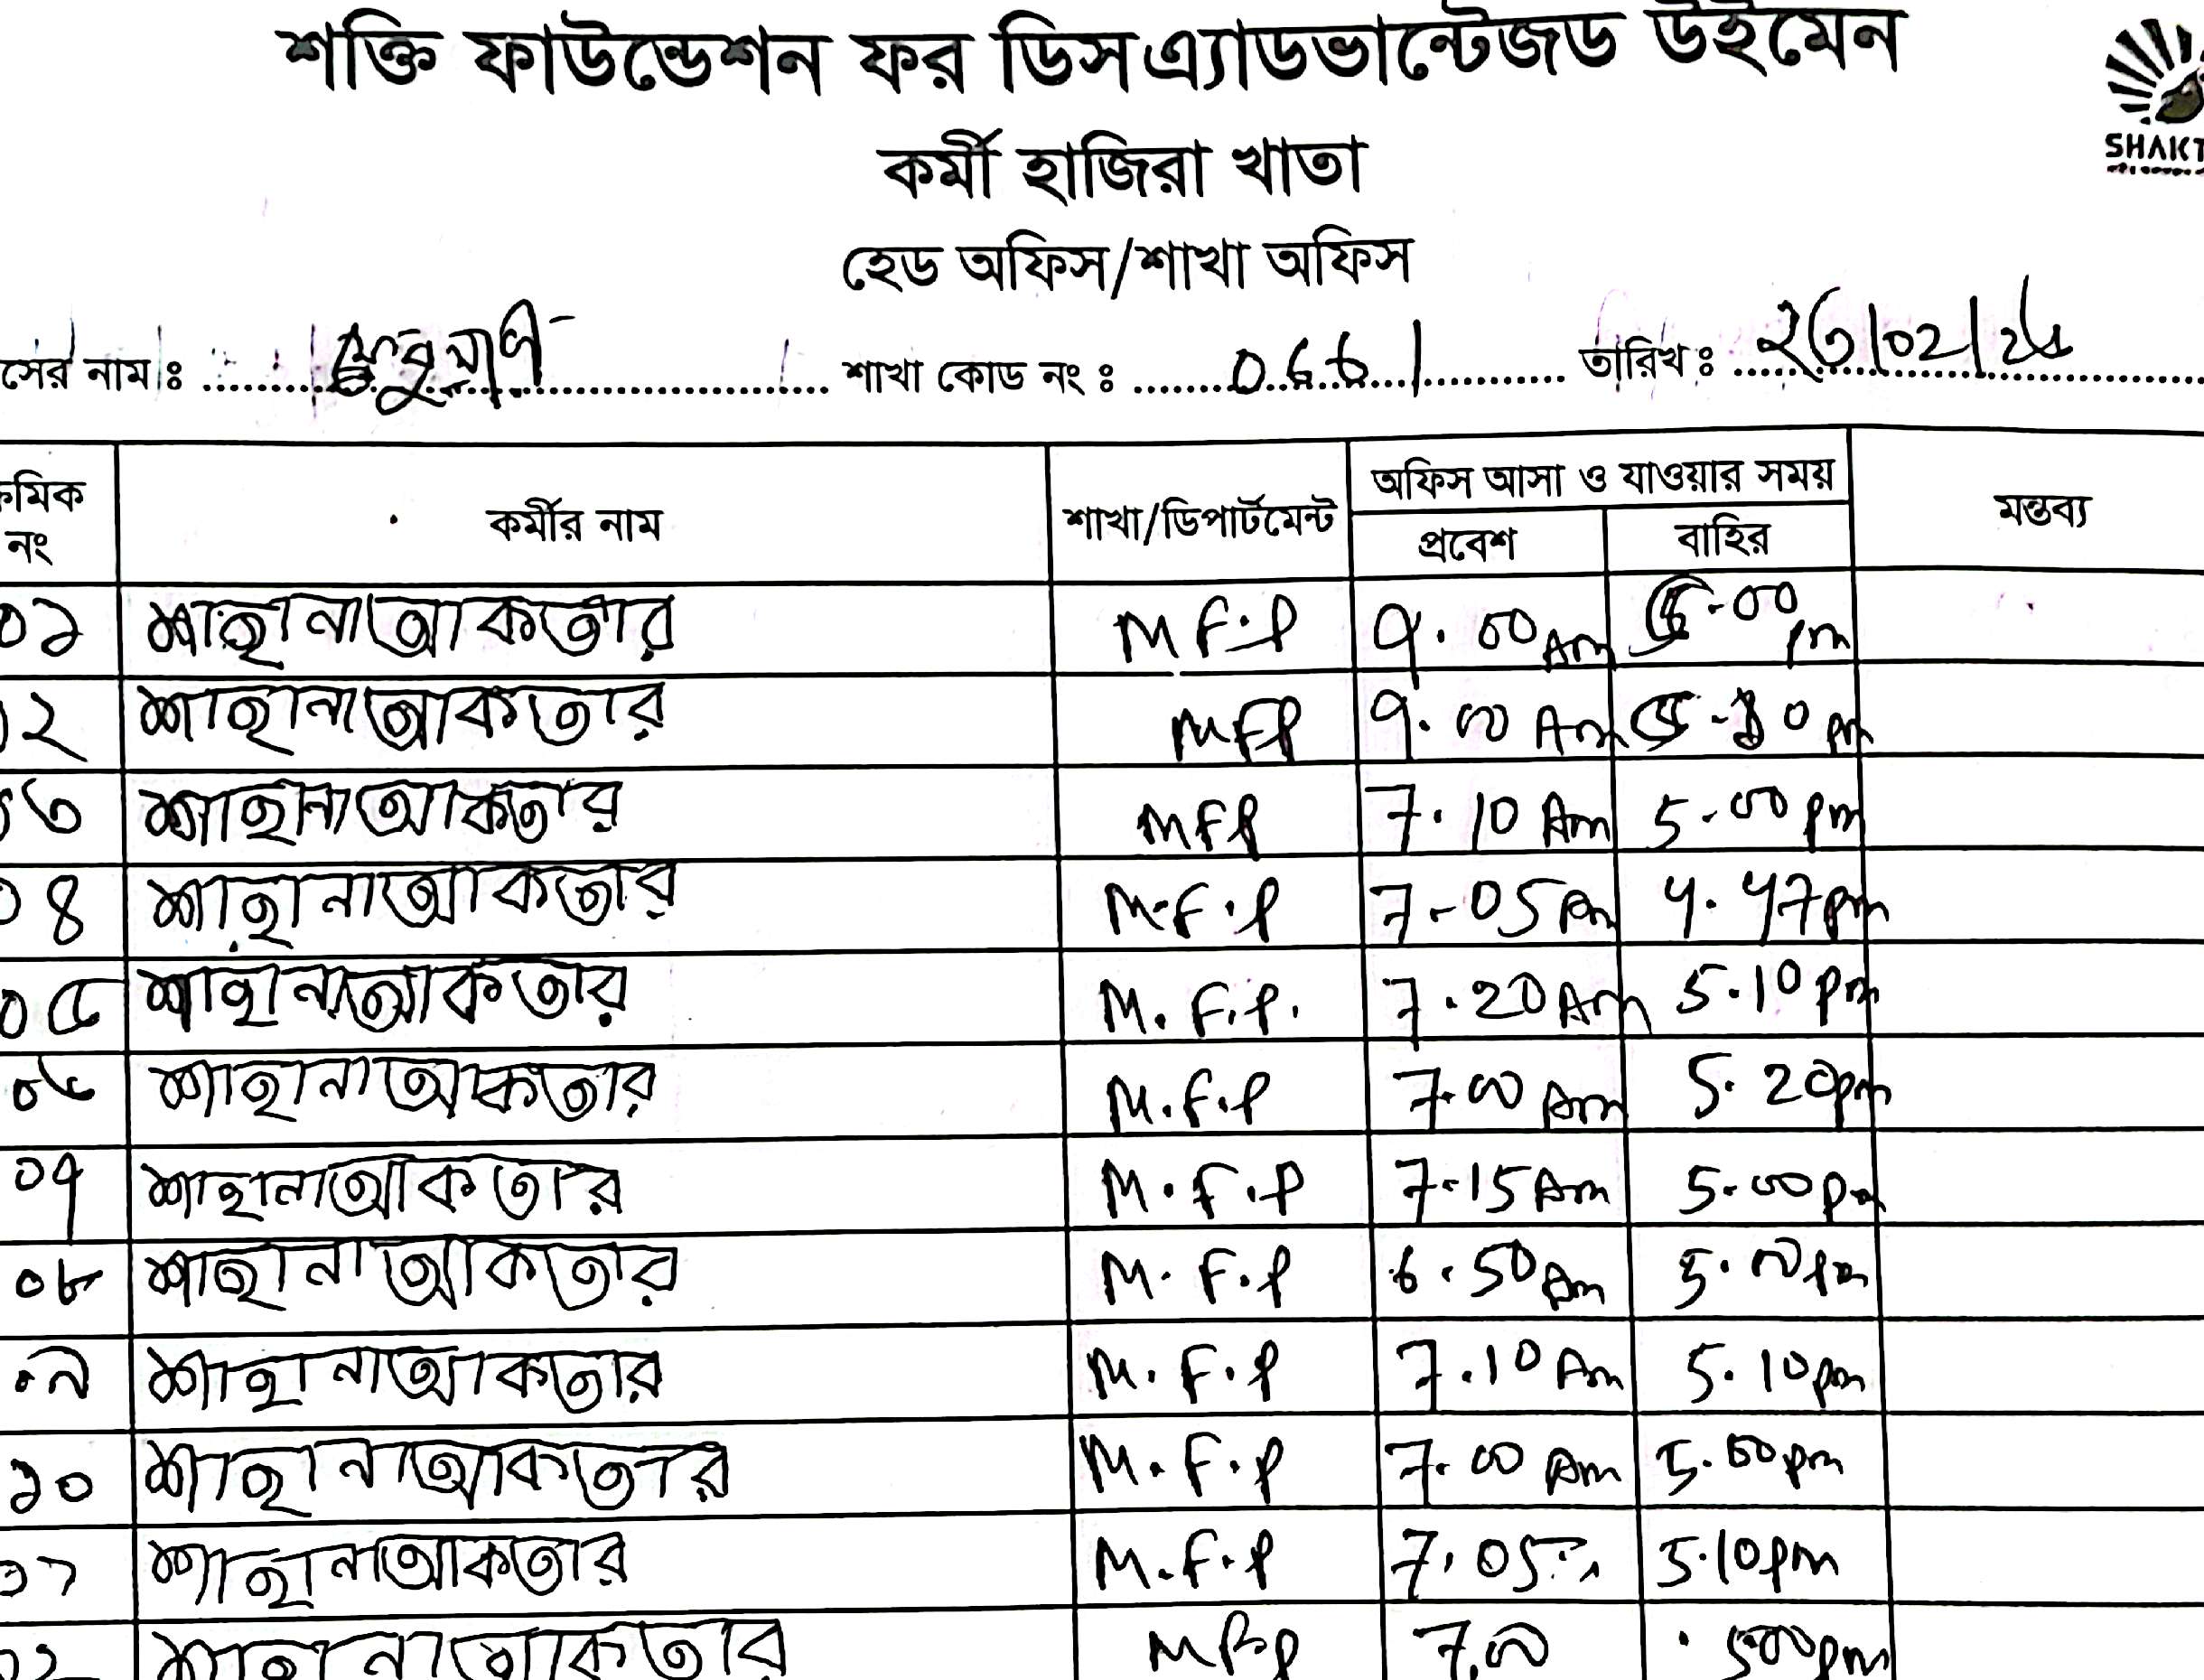 শক্তি ফাউন্ডেশন ফর ডিসএ্যাডভান্টেজড উইমেন
SHAKT
কর্মী হাজিরা খাতা
হেড অফিস/শাখা অফিস
সের নাম ঃ শাখা কোড নং ঃ 0661 তারিখ ঃ
ক্রমিক নং কর্মীর নাম শাখা/ডিপার্টমেন্ট অফিস আসা ও যাওয়ার সময় মন্তব্য
প্রবেশ বাহির
০১ শাহানা আকতার M F.P 9.00 Am 5-00 pm
০২ শাহানা আকতার MFP 9.00 Am 5-10 pm
০৩ শাহানা আকতার MFP 7.10 Am 5-00 pm
০৪ শাহানা আকতার M.F.P 7-05 Am 4.47pm
০৫ শাহানা আকতার M.F.P. 7.20 Am 5.10pm
০৬ শাহানা আকতার M.F.P 7.00 Am 5.20pm
০৭ শাহানা আকতার M.F.P 7.15 Am 5.00pm
০৮ শাহানা আকতার M.F.P 6.50 Am 5.00pm
০৯ শাহানা আকতার M.F.P 7.10 Am 5.10pm
১০ শাহানা আকতার M.F.P 7.00 Am 5.00pm
১১ শাহানা আকতার M.F.P 7.05 5.10pm
১২ শাহানা আকতার MF.P 7.00 5.00pm